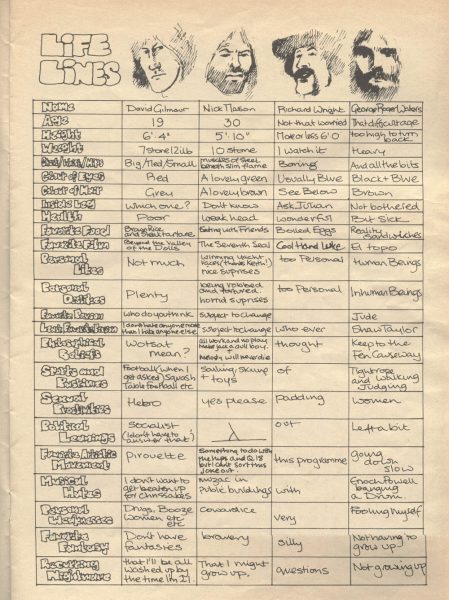 LIFE
LINES
Name David Gilmour Nick Mason Richard Wright George Roger Waters
Age 19 30 Not that worried That difficult age
Height 6' 4" 5' 10" More or less 6'0 too high to turn back
Weight 7 stone 12lb 10 stone I watch it Heavy
Chest/Waist/Hips Big/Med/Small muscles of steel beneath slim frame Boring And all the bits
Colour of Eyes Red A lovely green Usually Blue Black + Blue
Colour of Hair Grey A lovely brown See Below Brown
Inside Leg which one? Don't know Ask Julian Not bothered
Health Poor weak head wonderful But Sick
Favourite Food Brown Rice and steak tartare Eating with Friends Boiled Eggs Reality Sandwiches
Favourite Film Beyond the Valley of the Dolls The Seventh Seal Cool Hand Luke El topo
Personal Likes Not much Winning yacht races (thanks Keith!) nice suprises too Personal Human Beings
Personal Dislikes Plenty being robbed and tortured. horrid suprises too Personal Inhuman Beings
Favourite Person who do you think subject to change Jude
Least Favourite Person I don't hate anyone more than I hate anyone else subject to change who ever Shaw Taylor
Philosophical Beliefs Wotsat mean? all work and no play makes jack a dull boy + Melody will never die thought Keep to the Fen Causeway
Sports and Pastimes Football (when I get asked) Squash Table football etc. sailing, skiing + toys of Tightrope and Walking Judging
Sexual Proclivities Hetro yes please padding women
Political Leanings Socialist (I don't have to answer that) out Left a bit
Favourite Artistic Movement Pirouette Something to do with the hips and Q.18 but I can't sort this joke out this programme going down slow
Musical Hates I don't want to get beaten up for Chrissakes muzac in public buildings with Enoch Powell banging a Drum.
Personal Weaknesses Drugs, Booze Women etc etc cowardice very Fooling myself
Favourite Fantasy Don't have fantasies bravery silly Not having to grow up.
Recurring Nightmare that I'll be all washed up by the time I'm 21. That I might grow up. questions Not growing up